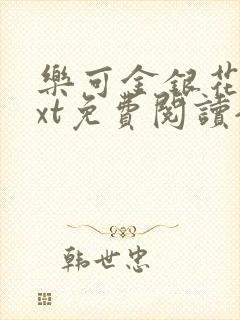 樂可金銀花
xt免費閱讀
韩世忠